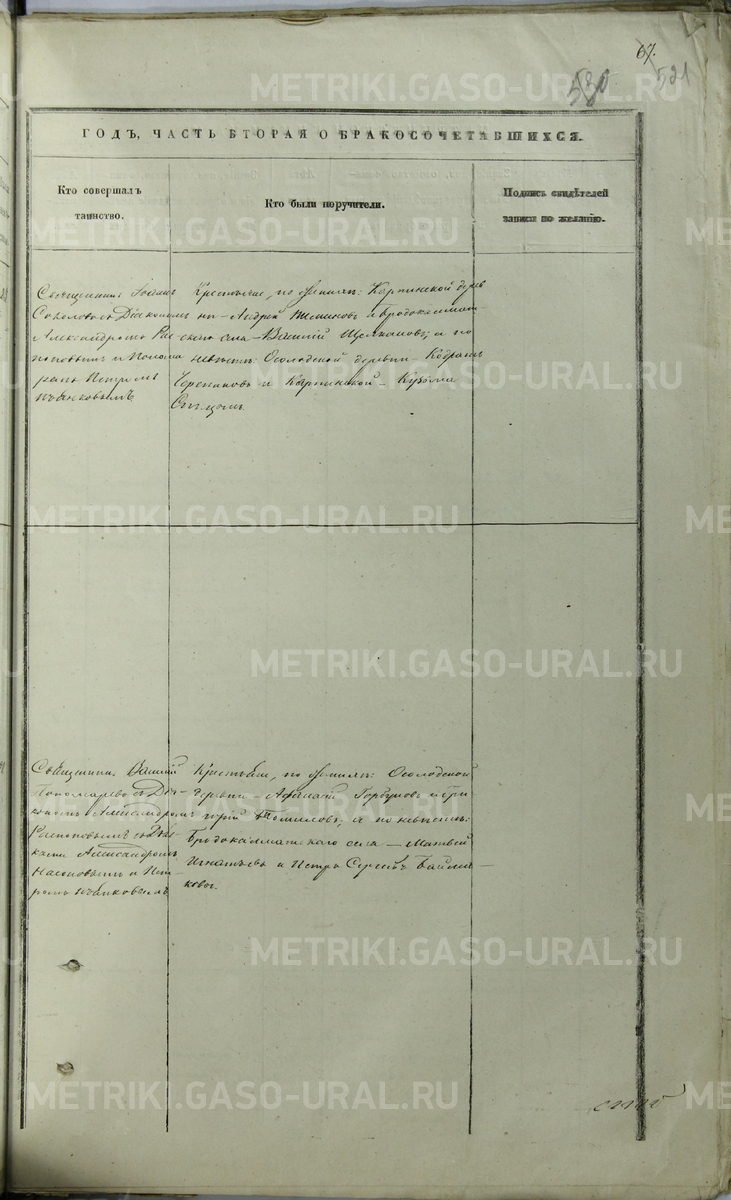 67.
530
521
ГОДЪ, ЧАСТЬ ВТОРАЯ О БРАКОСОЧЕТАВШИХСЯ.
Кто совершалъ
таинство.
Кто были поручители.
Подпись свидѣтелей
записи по желанію.
Священникъ Іоаннъ
Соколовъ съ Діакономъ
Александромъ Рас
поповымъ и Понома
ремъ Петромъ
Крестьяне, по женихѣ: Карпинской дерев
ни - Андрей и Бродокалмат
скаго села - Василій Щелкановъ; а по
невѣстѣ: Осолодской деревни - Кодратъ
Черепановъ и Карпинской - Кузьма
Священникъ Василій
Пономаревъ съ Діа
кономъ Александромъ
Распоповымъ
Александромъ
Насоновымъ и Пет
ромъ
Крестьяне, по женихѣ: Осолодской
деревни - Афанасій Горбуновъ и Гри
горій Томиловъ, а по невѣстѣ:
Бродокалматскаго села - Матвей
Игнатьевъ и Петръ Сергѣевъ
ковы.
METRIKI.GASO-URAL.RU